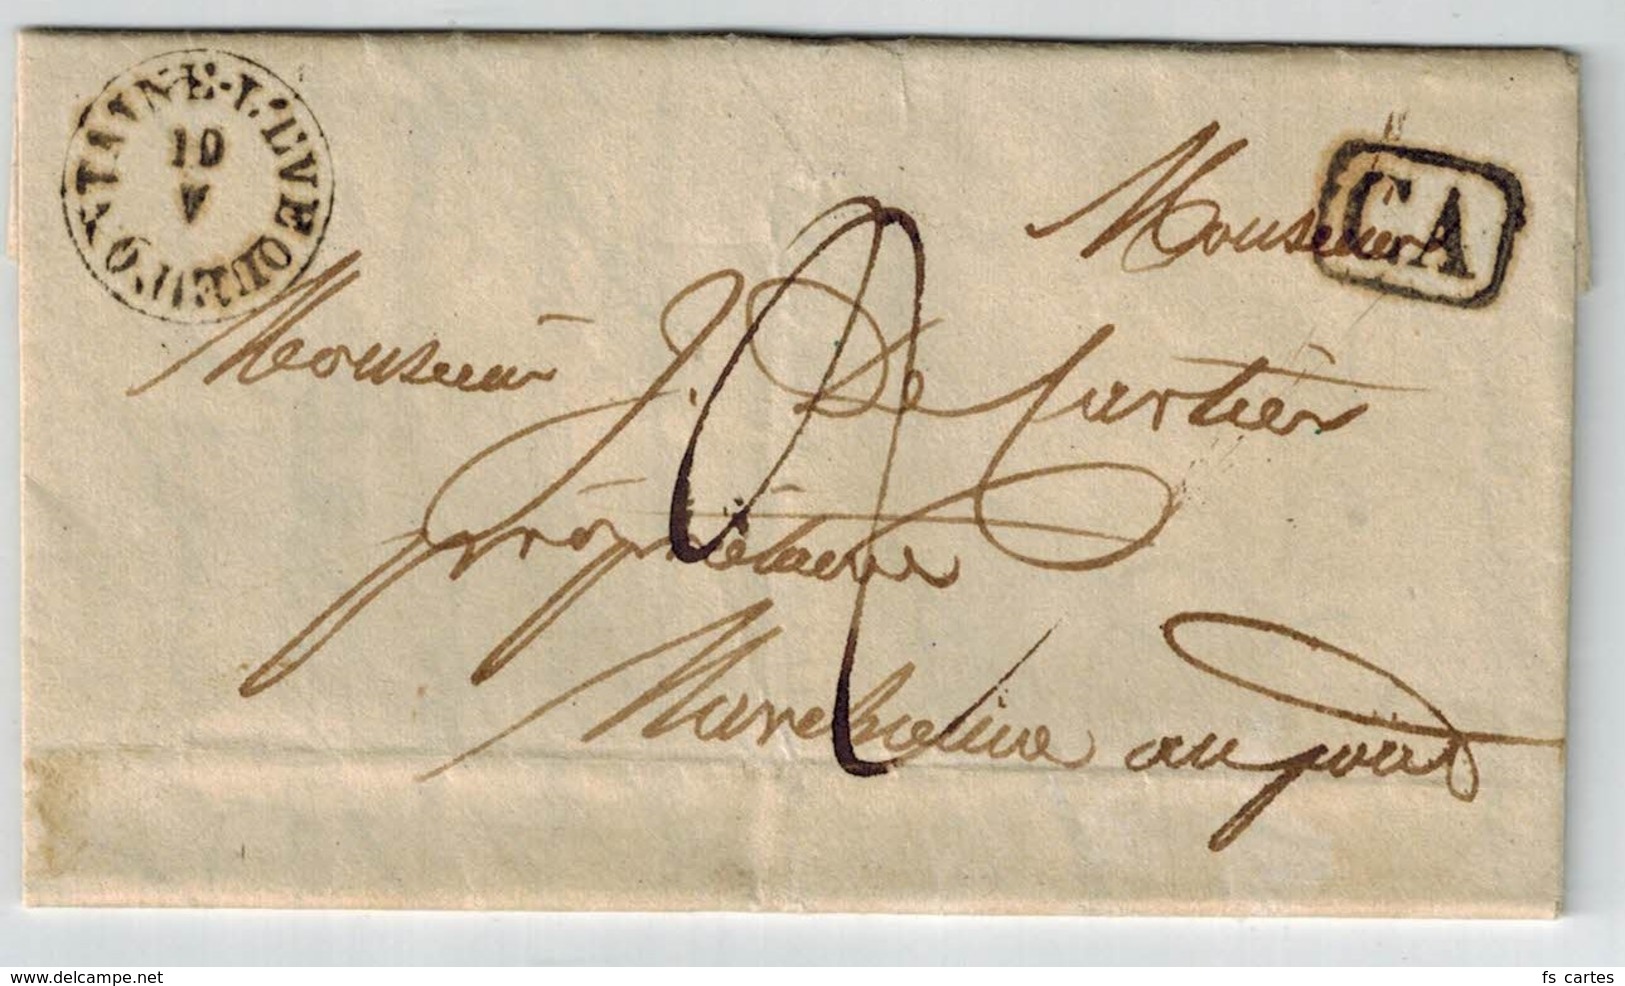 FONTAINE-L'EVEQUE
10
V
CA
Monsieur
Monsieur J. De Cartier
propriétaire
Marchienne au pont
2
www.delcampe.net
fs cartes